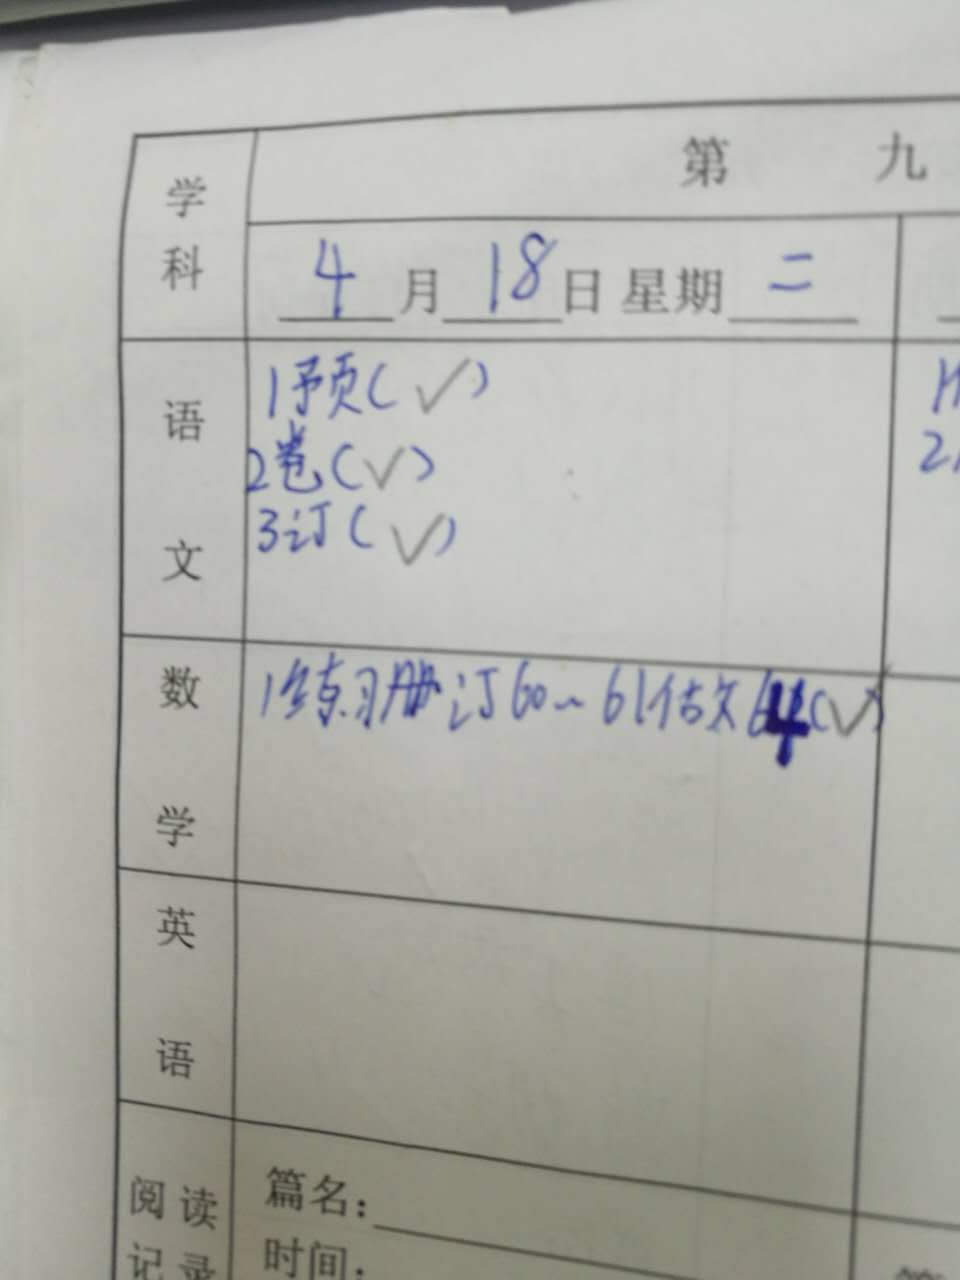 学科
第 九
4月18日 星期二
语文
1预(✓)
2卷(✓)
3订(✓)
1
2
数学
1练习册订60~61 64(✓)
英语
阅读记录
篇名:
时间: